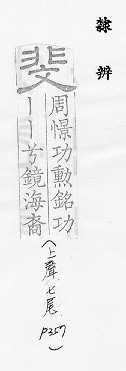 隸辨
斐
周憬功勳銘功
丨丨兮鏡海裔
(上聲七尾 P357)